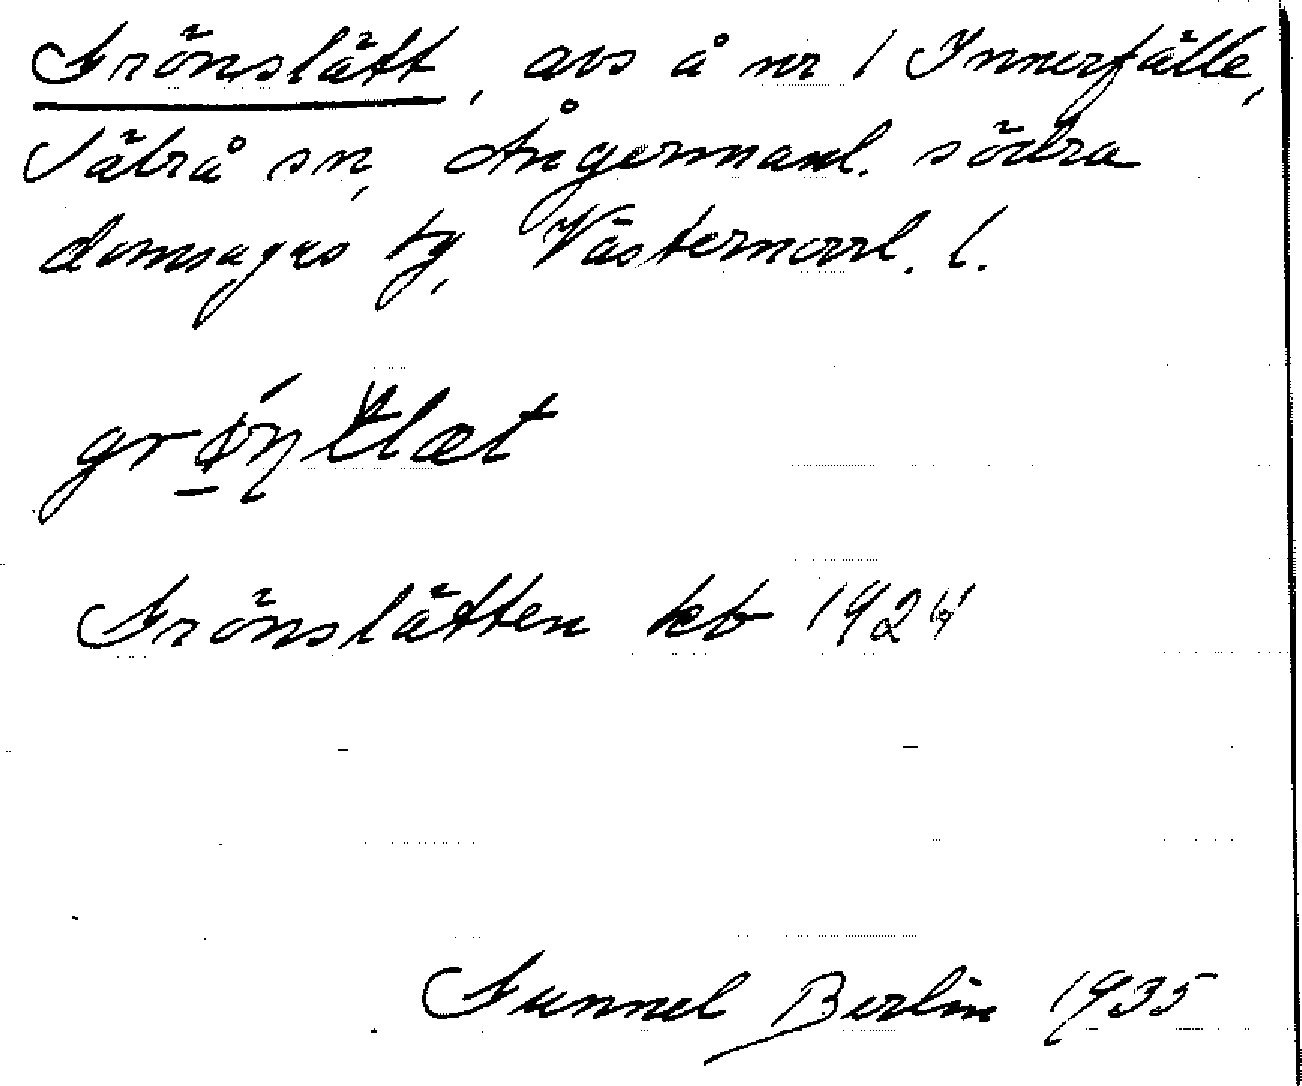 Grönslätt, avs å nr 1 Innerfälle,
Säbrå sn, Ångermanl. södra
domsagas tg, Västernorrl. l.
Grönslätten kb 1924
Gunnel Berlin 1935